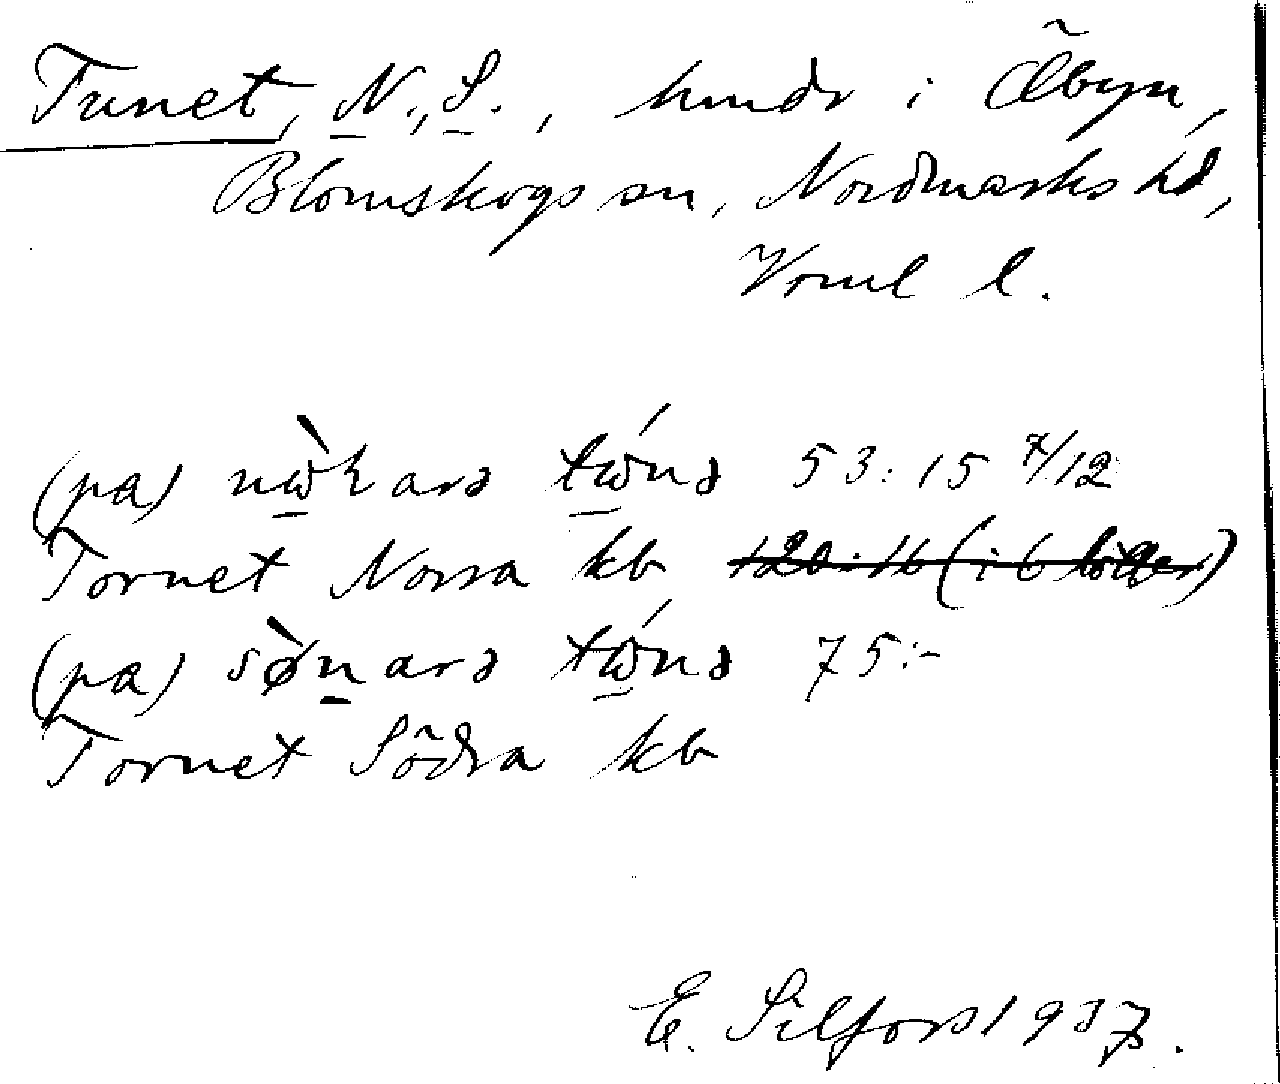 Tunet, N., S., hmdr i Õbyn,
Blomskogs sn, Nordmarks hd,
Vrml l.
(pa) nɷ̀karə tɷ́nə 53:15 7/12
Tornet Norra kb 120:16 (i 6 lotter)
(pa) sø̀narə tɷ́nə 75:-
Tornet Södra kb
E. Silfors 1937.